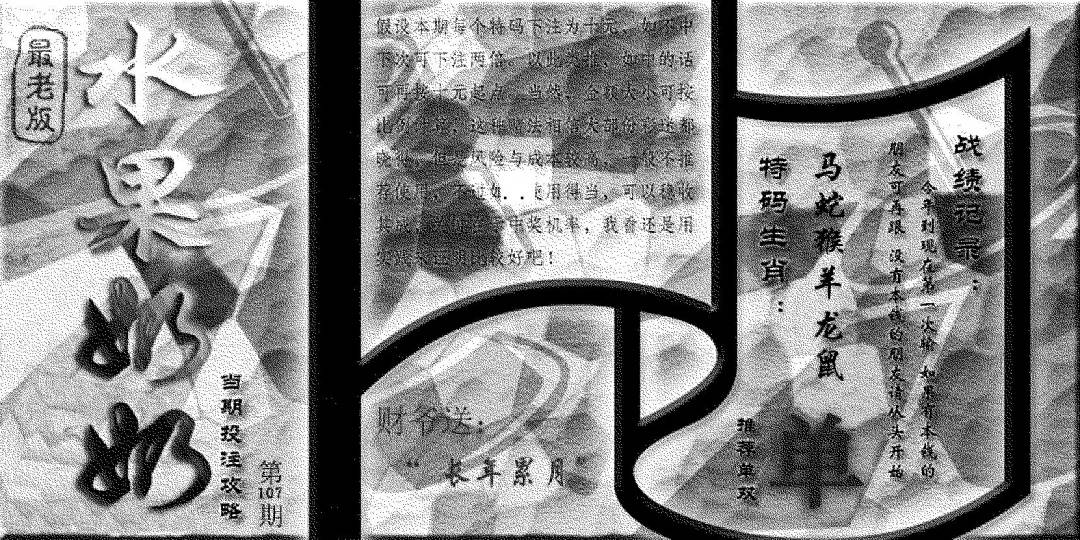 最老版
水果奶奶
当期投注攻略
第107期
假设本期每个特码下注为十元，如不中
下次可下注两倍，以此类推，如中的话
可再按十元起点，当然，金额大小可按
比例
这种
法相信大部份彩迷都
晓
风险与成本较高，一般不推
荐使用，不过如..使用得当，可以稳收
其成
中奖机率，我看还是用
实践来证明比较好吧！
财爷送：
“长年累月”
战绩记录：
今年到现在第一次输 如果有本钱的
朋友可再跟 没有本钱的朋友请从头开始
特码生肖：
马蛇猴羊龙鼠
推荐单双
单